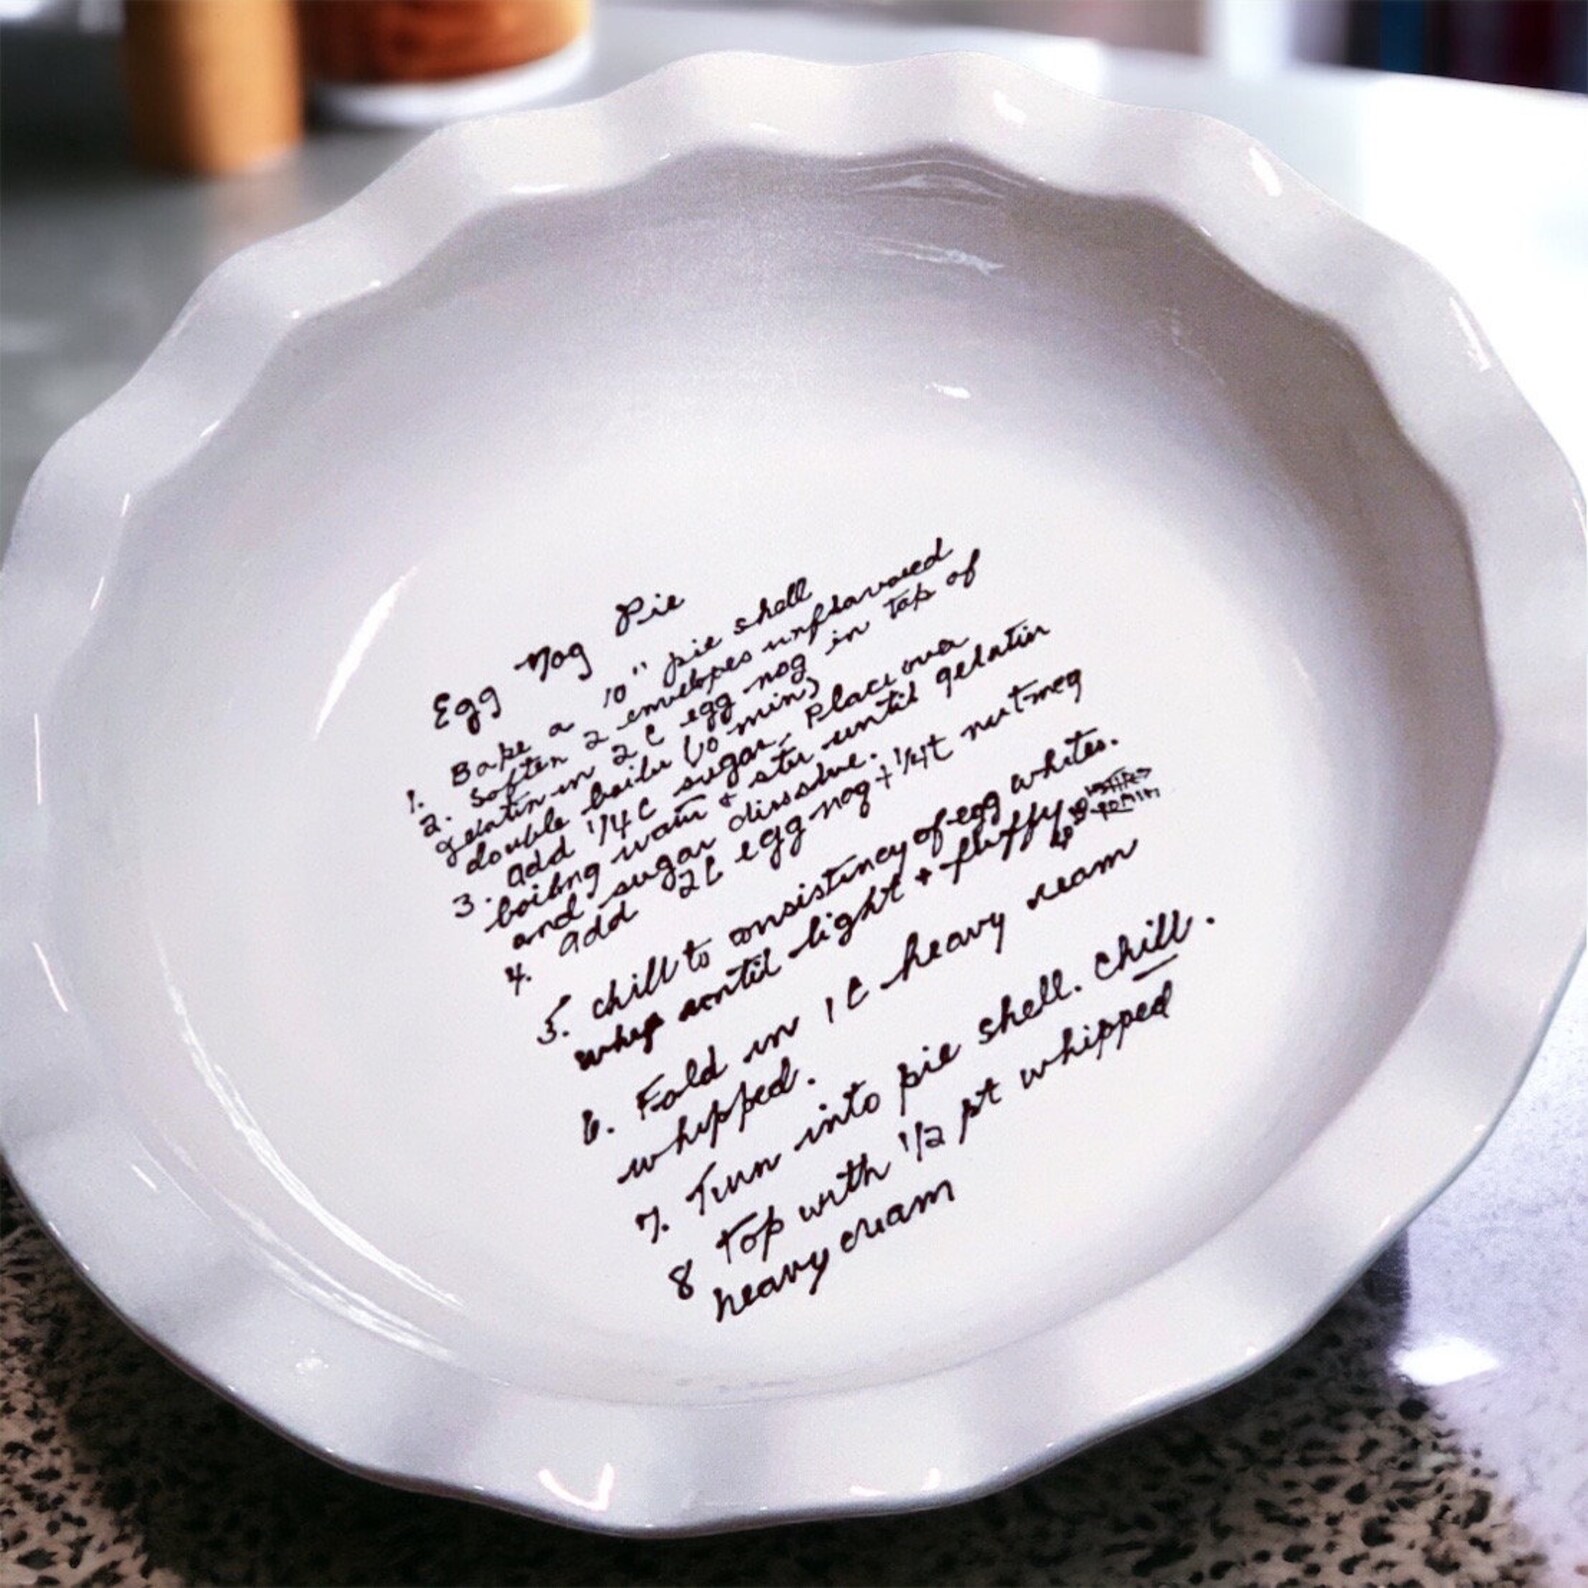 Egg Nog Pie
1. Bake a 10" pie shell
2. Soften 2 envelopes unflavored
gelatin in 2 C egg nog in top of
double boiler (10 min)
3. Add 1/4 C sugar. Place over
boiling water & stir until gelatin
and sugar dissolve.
4. Add 2C egg nog + 1/4t nutmeg
5. chill to consistency of egg whites.
whip until light + fluffy
6. Fold in 1 C heavy cream
whipped.
7. Turn into pie shell. Chill.
8 Top with 1/2 pt whipped
heavy cream